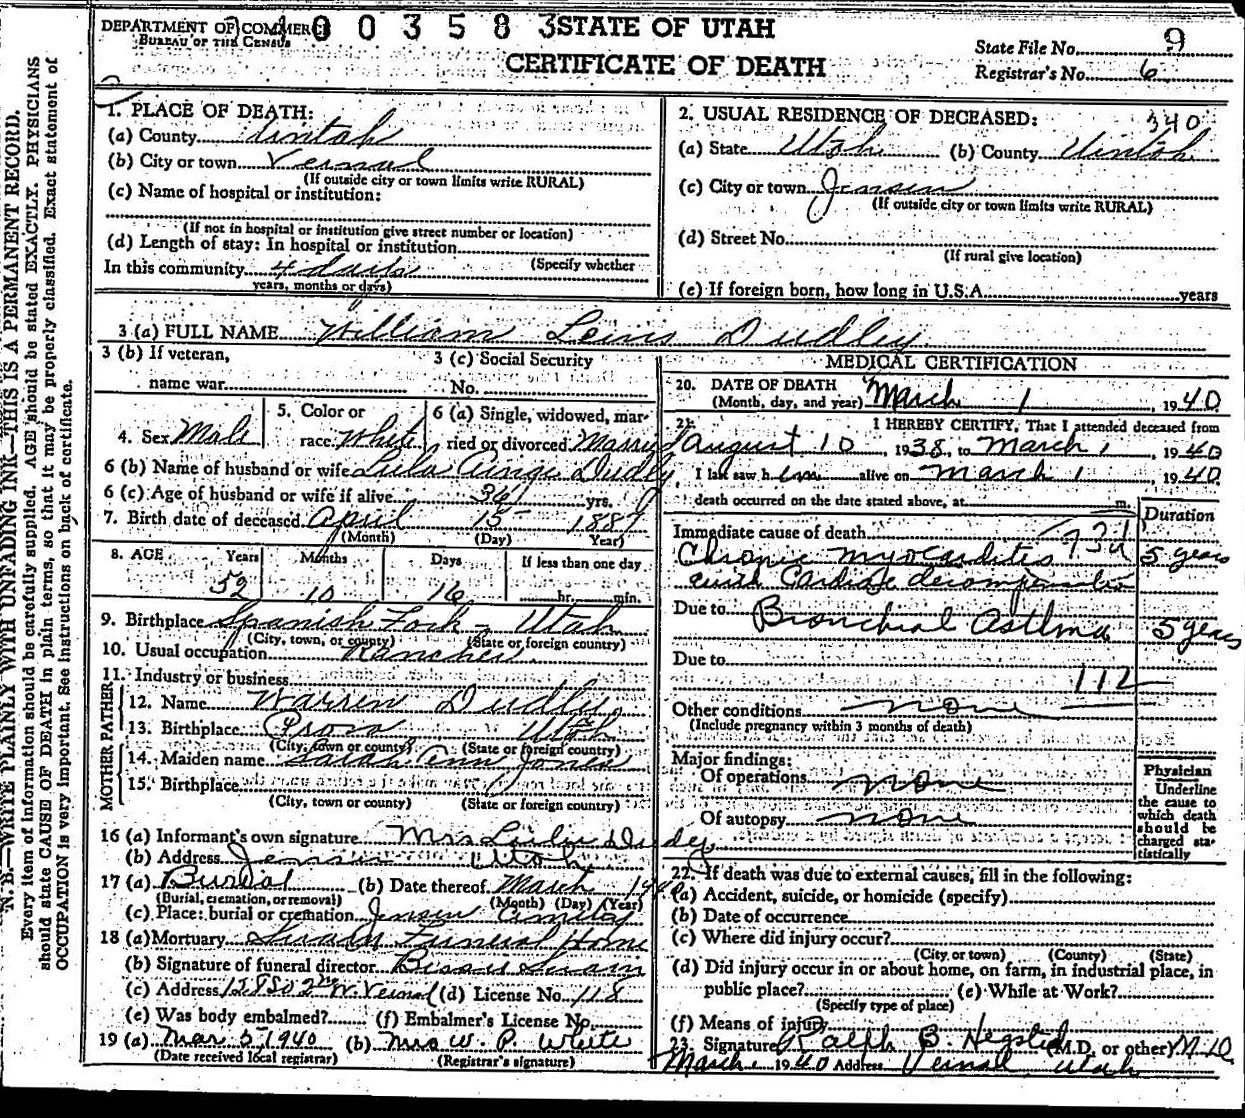 DEPARTMENT OF COMMERCE
BUREAU OF THE CENSUS
0 0 3 5 8 3
STATE OF UTAH
CERTIFICATE OF DEATH
State File No. 9
Registrar's No. 6
N. B.—WRITE PLAINLY WITH UNFADING INK—THIS IS A PERMANENT RECORD.
Every item of information should be carefully supplied. AGE should be stated EXACTLY. PHYSICIANS
should state CAUSE OF DEATH in plain terms, so that it may be properly classified. Exact statement of
OCCUPATION is very important. See instructions on back of certificate.
1. PLACE OF DEATH:
(a) County Uintah
(b) City or town Vernal
(If outside city or town limits write RURAL)
(c) Name of hospital or institution:
(If not in hospital or institution give street number or location)
(d) Length of stay: In hospital or institution
(Specify whether
In this community 4 days
years, months or days)
2. USUAL RESIDENCE OF DECEASED: 340
(a) State Utah (b) County Uintah
(c) City or town Jensen
(If outside city or town limits write RURAL)
(d) Street No.
(If rural give location)
(e) If foreign born, how long in U.S.A. years
3 (a) FULL NAME William Lewis Dudley
3 (b) If veteran, name war
3 (c) Social Security No.
4. Sex Male
5. Color or race White
6 (a) Single, widowed, married or divorced Married
6 (b) Name of husband or wife Lula Dudley
6 (c) Age of husband or wife if alive yrs.
7. Birth date of deceased April 15 1887
(Month) (Day) Year)
8. AGE Years Months Days If less than one day
52 10 16 hr. min.
9. Birthplace Spanish Fork - Utah
(City, town, or county) (State or foreign country)
10. Usual occupation Rancher
11. Industry or business
FATHER
12. Name Warren Dudley
13. Birthplace Provo Utah
(City, town or county) (State or foreign country)
MOTHER
14. Maiden name Sarah Ann Jones
15. Birthplace
(City, town or county) (State or foreign country)
16 (a) Informant's own signature Mrs Lula Dudley
(b) Address Jensen Utah
17 (a) Burial (b) Date thereof March 1940
(Burial, cremation, or removal) (Month) (Day) (Year)
(c) Place: burial or cremation Jensen Cemetery
18 (a) Mortuary Swain Funeral Home
(b) Signature of funeral director Swain
(c) Address W. Vernal (d) License No. 118
(e) Was body embalmed? (f) Embalmer's License No.
19 (a) Mar 5, 1940 (b) Mrs W. P. White
(Date received local registrar) (Registrar's signature)
MEDICAL CERTIFICATION
20. DATE OF DEATH
(Month, day, and year) March 1, 1940
21. I HEREBY CERTIFY, That I attended deceased from
August 10, 1938, to March 1, 1940
I last saw him alive on March 1, 1940
death occurred on the date stated above, at m.
Duration
Immediate cause of death
Chronic myocarditis 5 years
with Cardiac decompensation
Due to Bronchial Asthma 5 years
Due to
112
Other conditions none
(Include pregnancy within 3 months of death)
Major findings:
Of operations none
Of autopsy none
Physician
Underline
the cause to
which death
should be
charged sta-
tistically
22. If death was due to external causes, fill in the following:
(a) Accident, suicide, or homicide (specify)
(b) Date of occurrence
(c) Where did injury occur?
(City or town) (County) (State)
(d) Did injury occur in or about home, on farm, in industrial place, in
public place? (e) While at Work?
(Specify type of place)
(f) Means of injury
23. Signature Ralph B. Hegsted (M.D. or other) M.D.
March 1940 Address Vernal, Utah